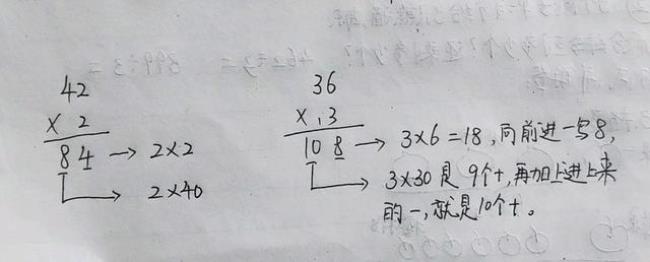 42
× 2
84 → 2×2
→ 2×40
36
×.3
108 → 3×6=18,向前进一写8,
→ 3×30是9个十,再加上进上来
的一,就是10个十。